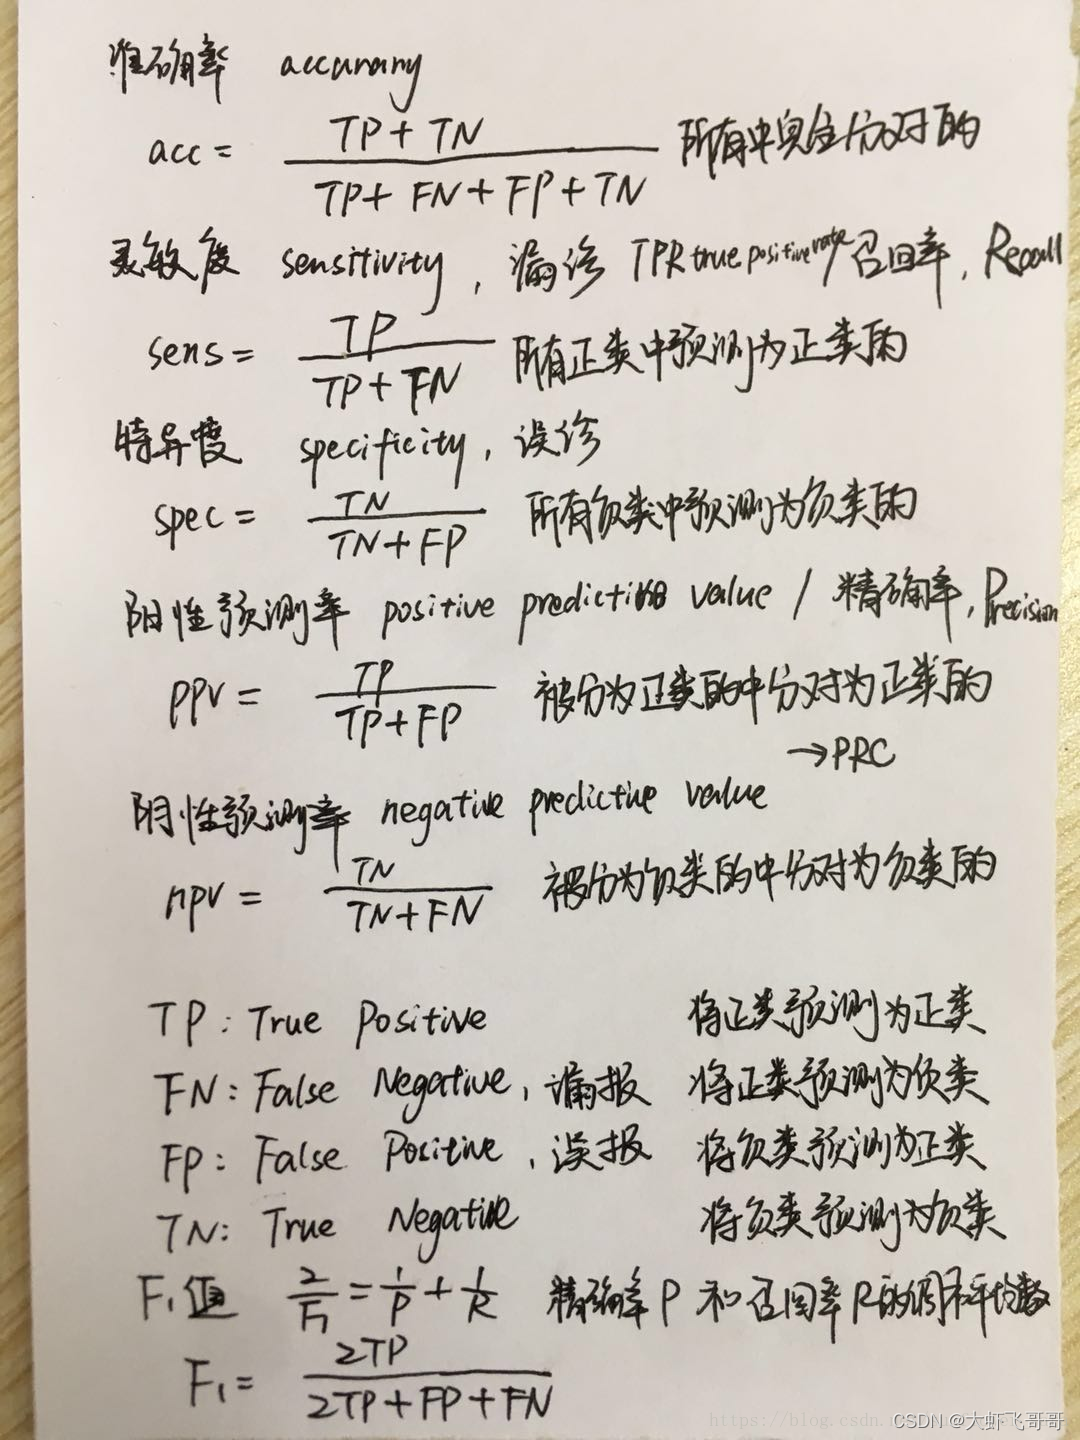 准确率 accuracy
acc = (TP + TN) / (TP + FN + FP + TN) 所有中完全分对的
灵敏度 sensitivity, 漏诊 TPR true positive rate/召回率, Recall
sens = TP / (TP + FN) 所有正类中预测为正类的
特异度 specificity, 误诊
spec = TN / (TN + FP) 所有负类中预测为负类的
阳性预测率 positive predictive value / 精确率, Precision
ppv = TP / (TP + FP) 被分为正类的中分对为正类的
→PRC
阴性预测率 negative predictive value
npv = TN / (TN + FN) 被分为负类的中分对为负类的
TP: True Positive 将正类预测为正类
FN: False Negative, 漏报 将正类预测为负类
FP: False Positive, 误报 将负类预测为正类
TN: True Negative 将负类预测为负类
F₁值 2/F₁ = 1/P + 1/R 精确率P和召回率R的调和平均数
F₁ = 2TP / (2TP + FP + FN)
https://blog.csdn.n
CSDN @大虾飞哥哥